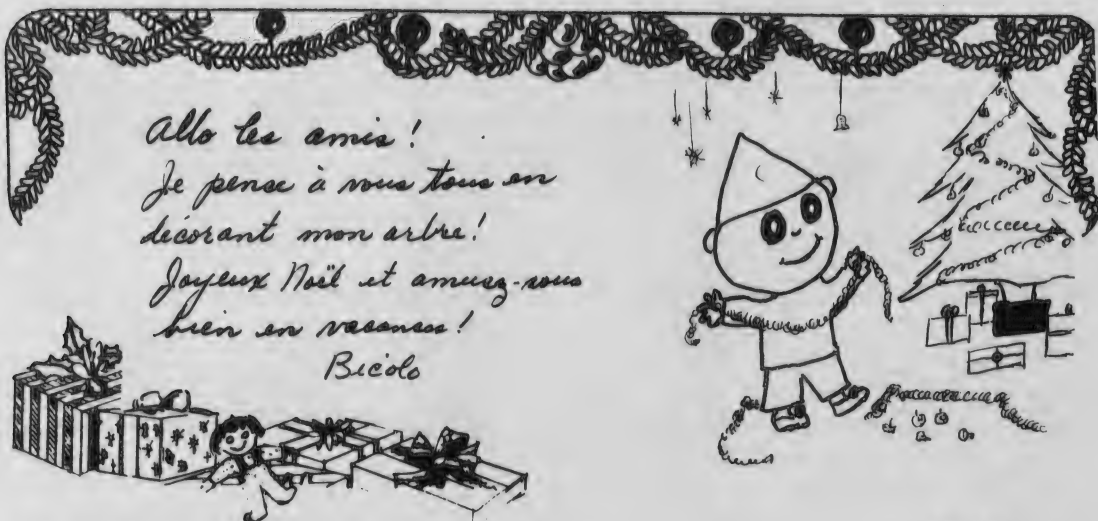 Allo les amis!
Je pense à vous tous en
décorant mon arbre!
Joyeux Noël et amusez-vous
bien en vacances!
Bicolo